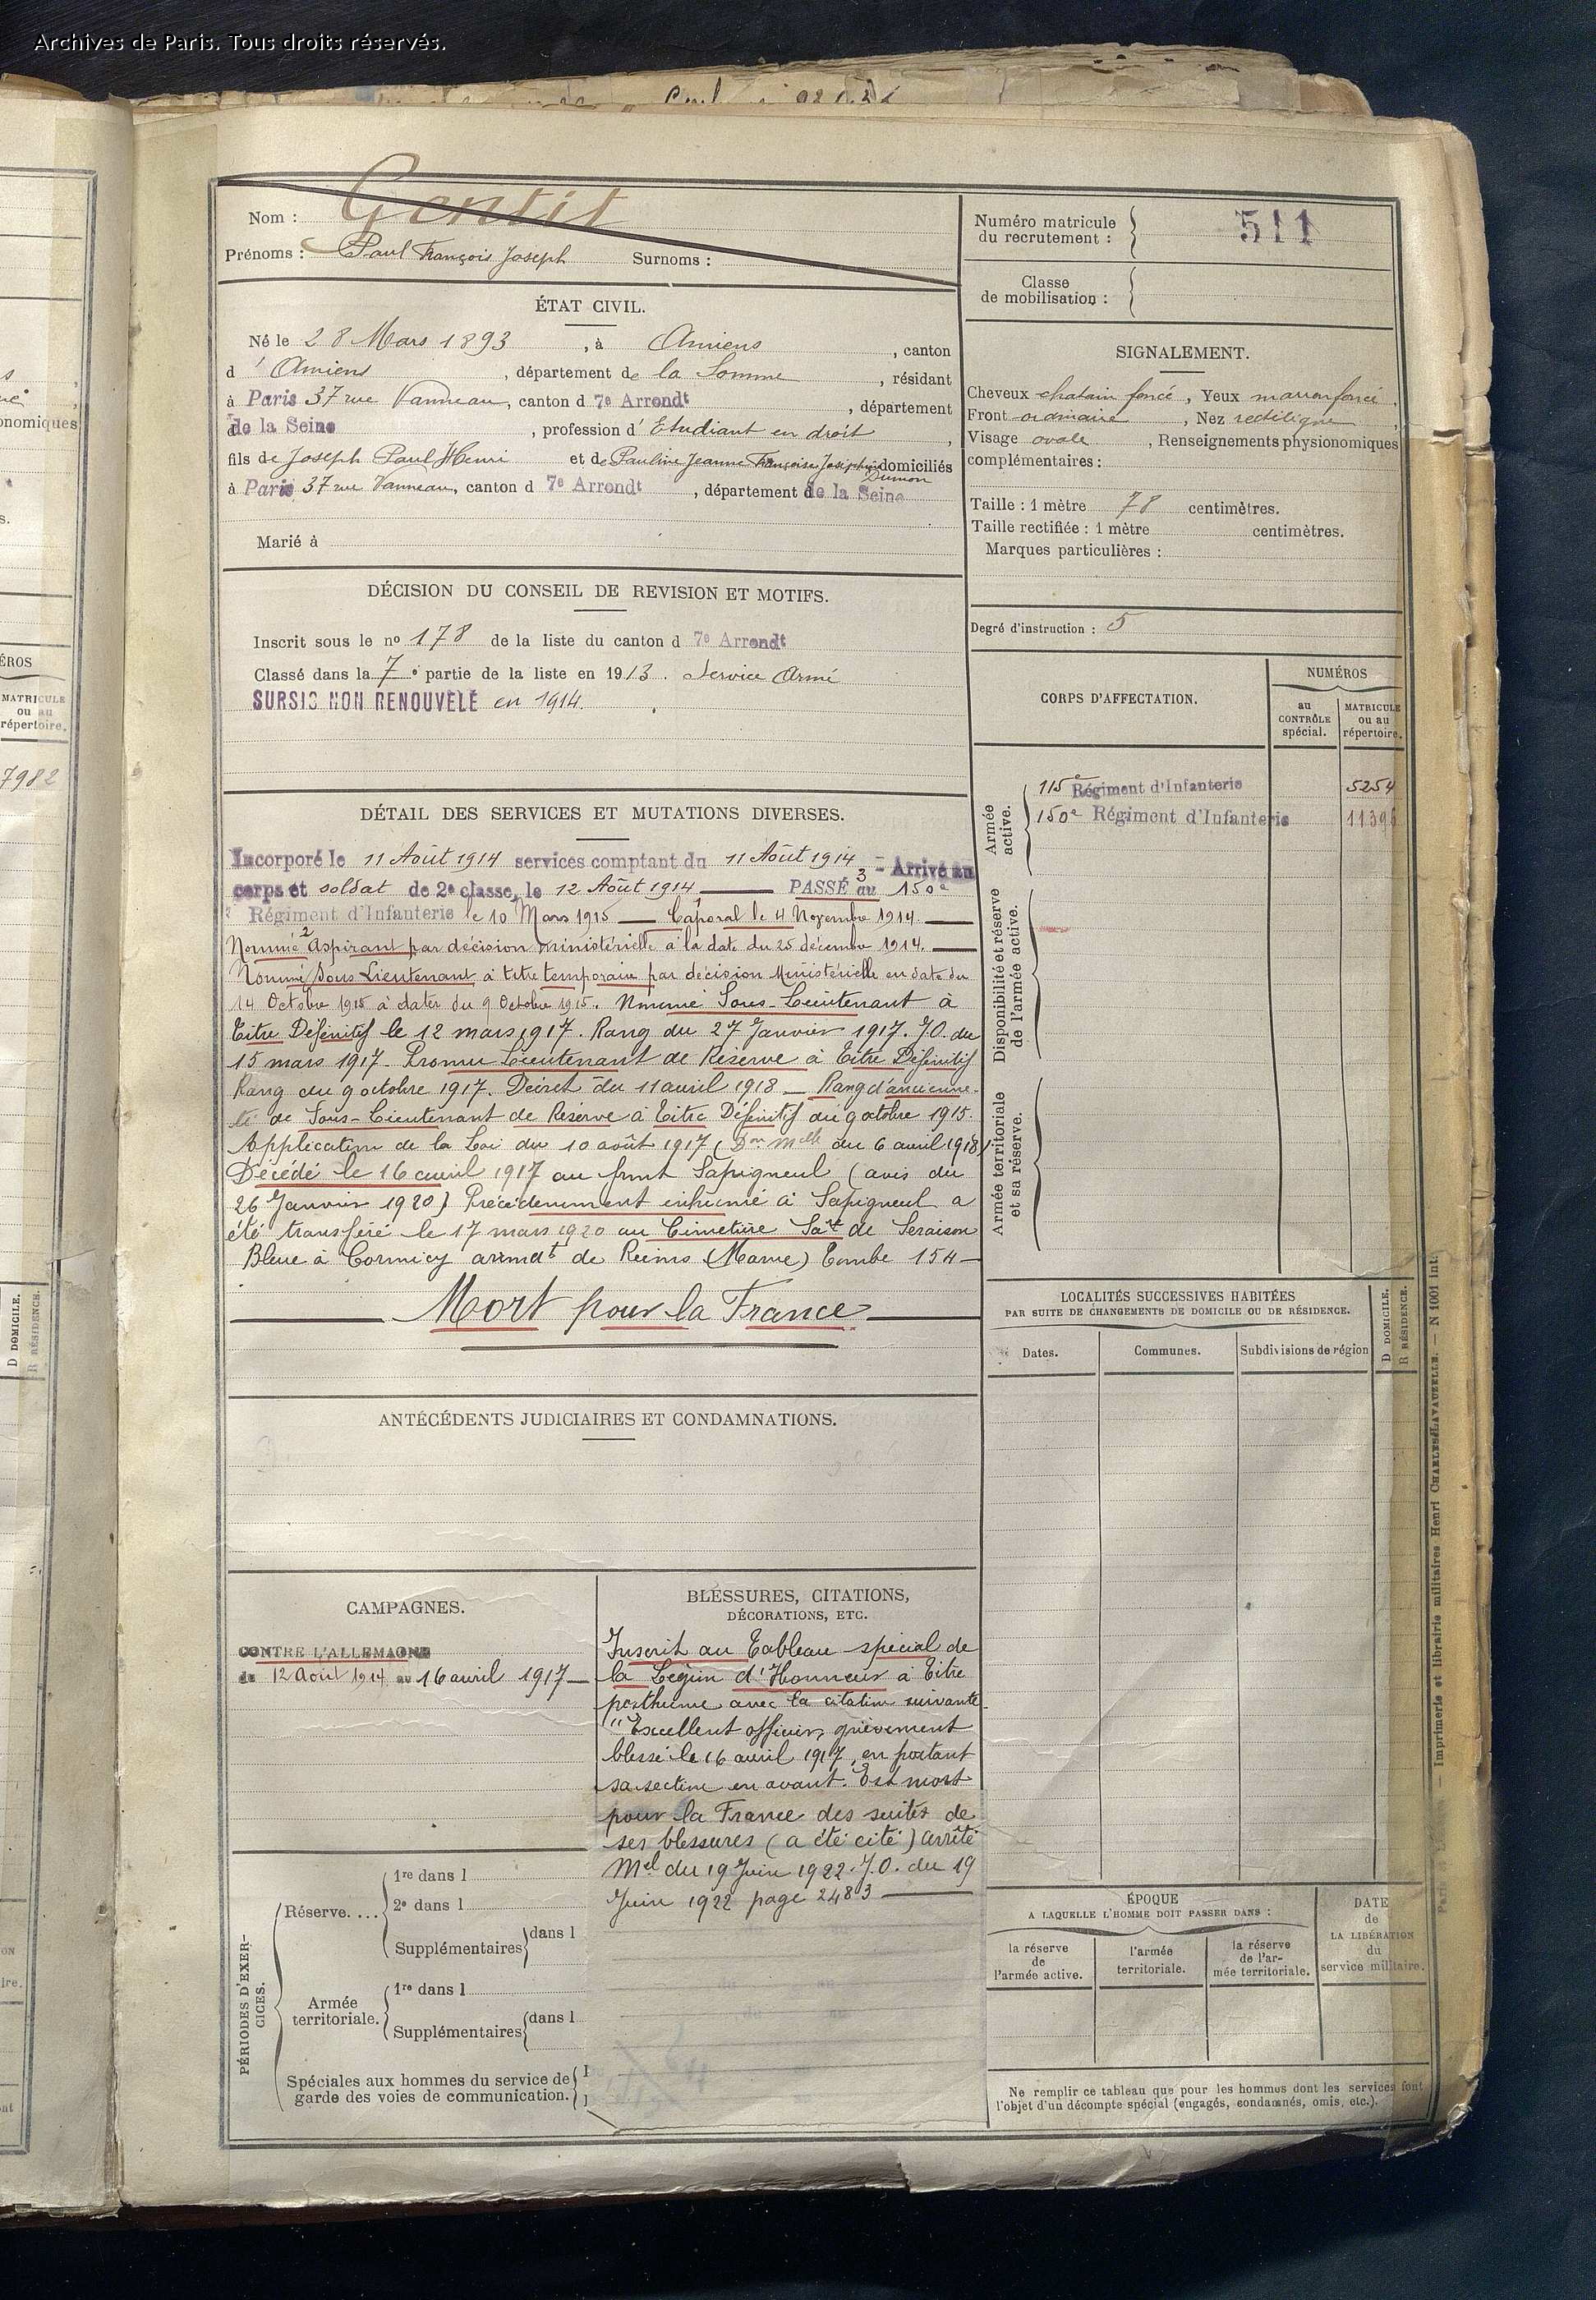 Archives de Paris. Tous droits réservés.
Nom : Gentil
Prénoms : Paul François Joseph Surnoms :
Numéro matricule du recrutement : 511
Classe de mobilisation :
ÉTAT CIVIL.
Né le 28 Mars 1893, à Amiens, canton
d'Amiens, département de la Somme, résidant
à Paris 37 rue Vanneau, canton d 7e Arrondt, département
de la Seine, profession d'Etudiant en droit,
fils de Joseph Paul Henri et de Pauline Jeanne Françoise Joséphine Dumon domiciliés
à Paris 37 rue Vanneau, canton d 7e Arrondt, département de la Seine
Marié à
SIGNALEMENT.
Cheveux chatain foncé, Yeux marron foncé,
Front ordinaire, Nez rectiligne,
Visage ovale, Renseignements physionomiques
complémentaires :
Taille : 1 mètre 78 centimètres.
Taille rectifiée : 1 mètre centimètres.
Marques particulières :
Degré d'instruction : 5
DÉCISION DU CONSEIL DE REVISION ET MOTIFS.
Inscrit sous le no 178 de la liste du canton d 7e Arrondt
Classé dans la 7e partie de la liste en 1913. Service Armé
SURSIS NON RENOUVELÉ en 1914.
CORPS D'AFFECTATION.
NUMÉROS
au CONTRÔLE spécial.
MATRICULE ou au répertoire.
Armée active.
115e Régiment d'Infanterie 5254
150e Régiment d'Infanterie 11396
Disponibilité et réserve de l'armée active.
Armée territoriale et sa réserve.
DÉTAIL DES SERVICES ET MUTATIONS DIVERSES.
Incorporé le 11 Août 1914 services comptant du 11 Août 1914 - Arrivé au
corps et soldat de 2e classe, le 12 Août 1914 — 3 PASSÉ au 150e
Régiment d'Infanterie le 10 Mars 1915 — 1 Caporal le 4 Novembre 1914.—
Nommé 2 Aspirant par décision ministérielle à la date du 25 décembre 1914.—
Nommé Sous Lieutenant à titre temporaire par décision Ministérielle en date du
14 Octobre 1915 à dater du 9 Octobre 1915. Nommé Sous-Lieutenant à
Titre Définitif le 12 mars 1917. Rang du 27 Janvier 1917. J.O. du
15 mars 1917. Promu Lieutenant de Réserve à Titre Définitif
Rang du 9 octobre 1917. Décret du 11 avril 1918 — Rang d'ancienne-
té de Sous-Lieutenant de Réserve à Titre Définitif du 9 octobre 1915.
Application de la Loi du 10 août 1917 (Don Melle du 6 avril 1918)
Décédé le 16 avril 1917 au front Sapigneul (avis du
26 Janvier 1920) Précédemment inhumé à Sapigneul a
été transféré le 17 mars 1920 au Cimetière de
Bleue à Cormicy arrondt de Reims (Marne) Tombe 154 —
Mort pour la France
LOCALITÉS SUCCESSIVES HABITÉES
PAR SUITE DE CHANGEMENTS DE DOMICILE OU DE RÉSIDENCE.
Dates. Communes. Subdivisions de région
D DOMICILE.
R RÉSIDENCE.
ANTÉCÉDENTS JUDICIAIRES ET CONDAMNATIONS.
CAMPAGNES.
CONTRE L'ALLEMAGNE
du 12 Août 1914 au 16 avril 1917 —
BLESSURES, CITATIONS,
DÉCORATIONS, ETC.
Inscrit au Tableau spécial de
la Légion d'Honneur à titre
posthume avec la citation suivante
"Excellent officier, grièvement
blessé le 16 avril 1917, en portant
sa section en avant. Est mort
pour la France des suites de
ses blessures (a été cité) arrêté
Mel du 19 Juin 1922. J.O. du 19
Juin 1922 page 2483 —
PÉRIODES D'EXERCICES.
Réserve....
1re dans l
2e dans l
Supplémentaires dans l
Armée territoriale.
1re dans l
Supplémentaires dans l
Spéciales aux hommes du service de
garde des voies de communication.
ÉPOQUE
A LAQUELLE L'HOMME DOIT PASSER DANS :
la réserve de l'armée active.
l'armée territoriale.
la réserve de l'armée territoriale.
DATE de LA LIBÉRATION du service militaire.
Ne remplir ce tableau que pour les hommes dont les services font
l'objet d'un décompte spécial (engagés, condamnés, omis, etc.).
Imprimerie et librairie militaires Henri CHARLES-LAVAUZELLE. — N 1001 int.
onomiques
ÉROS
MATRICULE
ou au
répertoire.
7982
D DOMICILE.
R RÉSIDENCE.